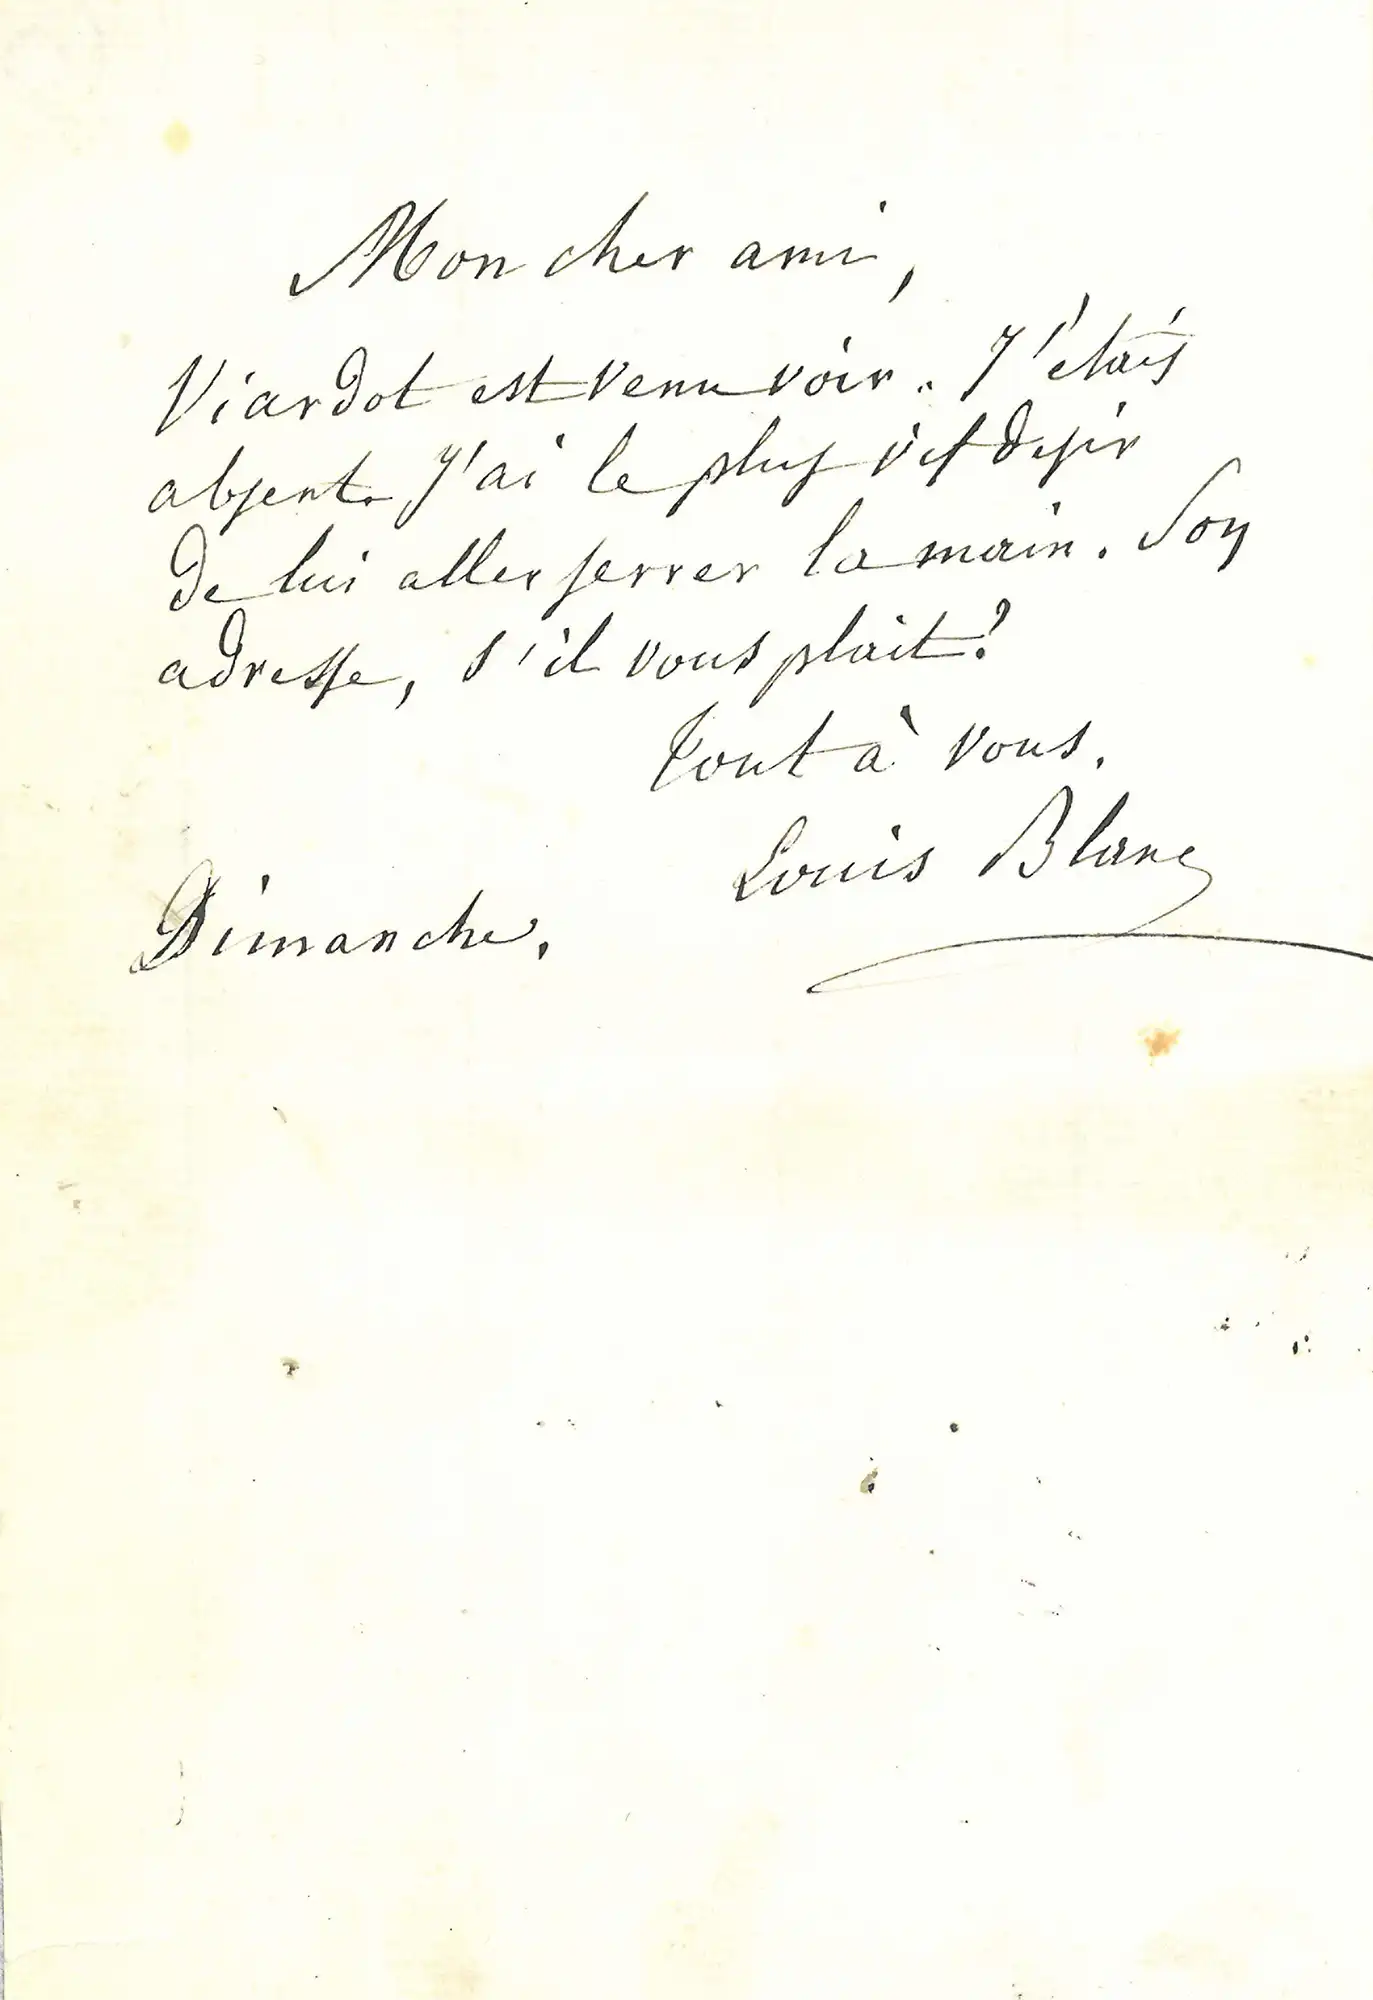 Mon cher ami,
Viardot est venu voir. J'étais
absent. J'ai le plus vif desir
de lui aller serrer la main. Son
adresse, s'il vous plait?
Tout à vous.
Louis Blanc
Dimanche.